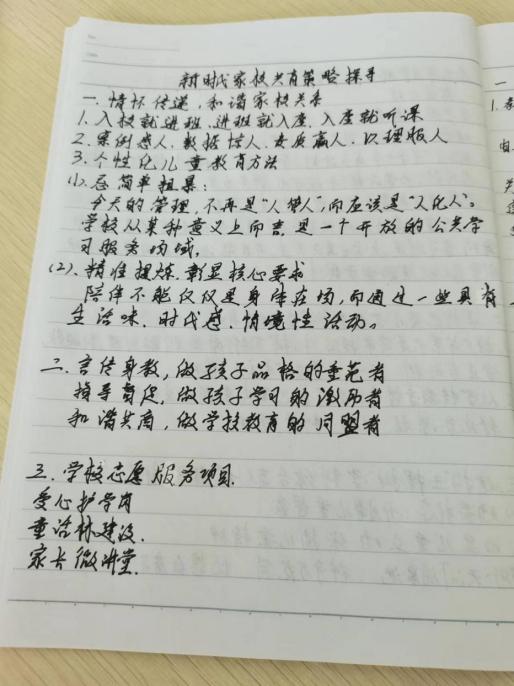 新时代家校共育策略探寻
一.情怀传递,和谐家校关系
1.入校就进班.进班就入座.入座就听课
2.案例感人.数据惊人.素质赢人.以理服人
3.个性化儿童教育方法
(1).忌简单粗暴:
今天的管理,不再是“人管人”,而应该是“人化人”。
学校从某种意义上而言是一个开放的公共学
习服务场域。
(2).精性提炼.彰显核心要求
陪伴不能仅仅是身体在场,而通过一些具有
生活味.时代感.情境性活动。
二.言传身教,做孩子品格的垂范者
指导督促,做孩子学习的激励者
和谐共商,做学校教育的同盟者
三.学校志愿服务项目.
爱心护学岗
童话林建设.
家长微讲堂.